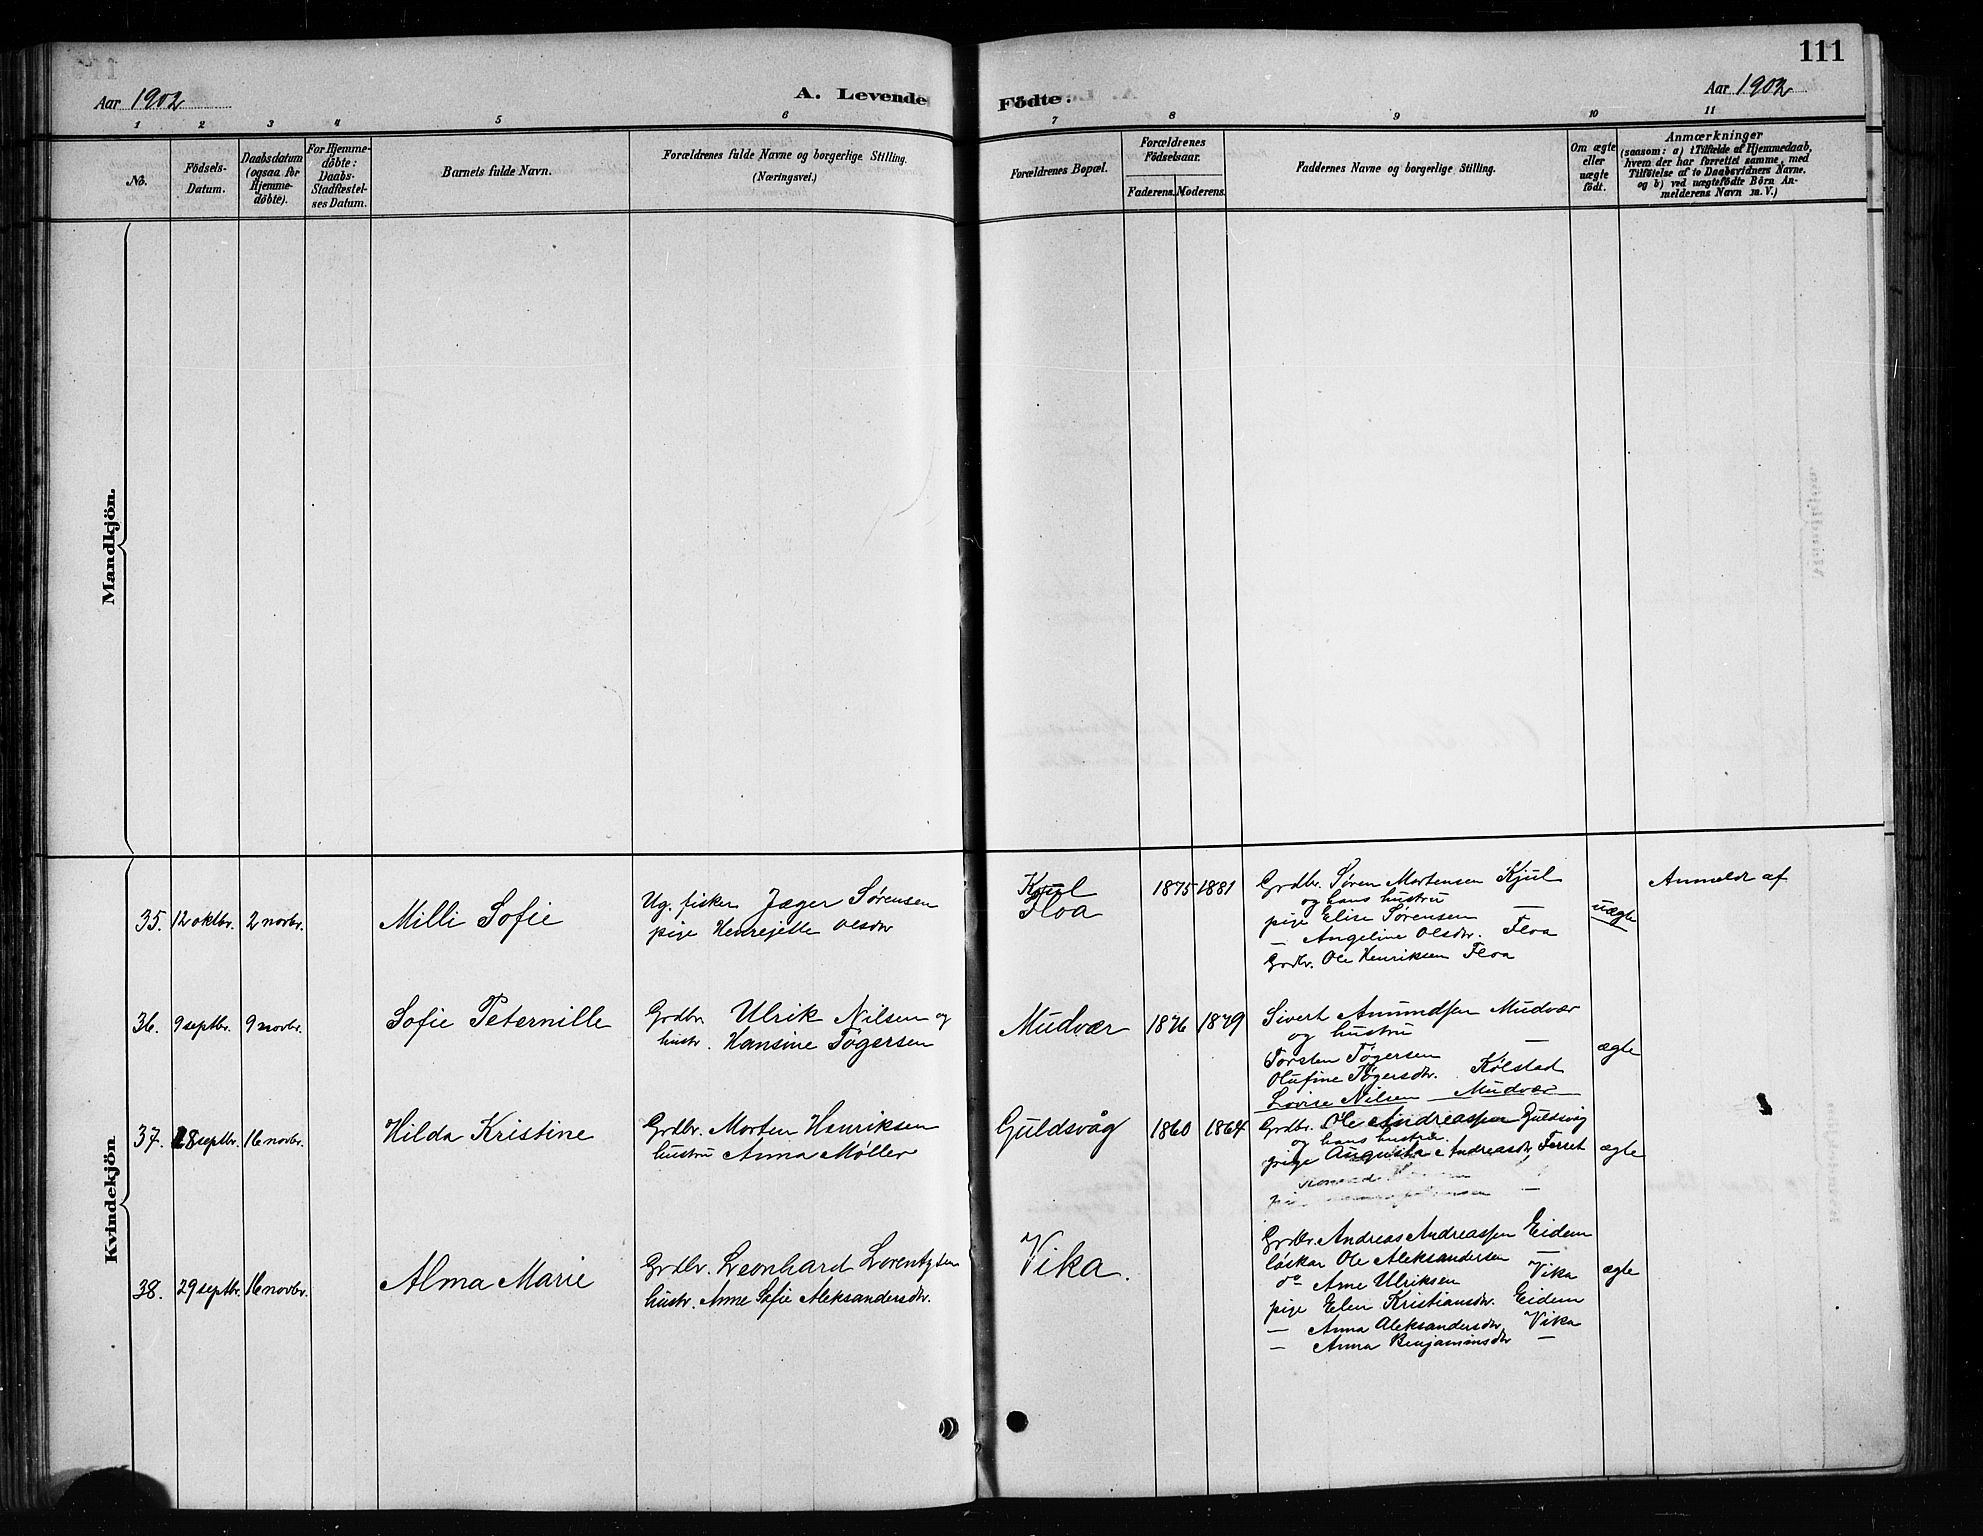 111
Aar 1902
A. Levende
Födte.
Aar 1902
1 2 3 4 5 6 7 8 9 10 11
No.
Födsels-
Datum.
Daabsdatum
(ogsaa for
Hjemme-
döbte).
For Hjemme-
döbte:
Daabs-
Stadfæstel-
ses Datum.
Barnets fulde Navn.
Forældrenes fulde Navne og borgerlige Stilling.
(Næringsvei.)
Forældrenes Bopæl.
Forældrenes
Födselsaar.
Faderens. Moderens.
Faddernes Navne og borgerlige Stilling.
Om ægte
eller
uægte
födt.
Anmærkninger
(saasom: a) i Tilfælde af Hjemmedaab,
hvem der har forrettet samme, med
Tilföielse af to Daabsvidners Navne,
og b) ved uægtefödte Börn An-
melderens Navn m. V.)
Mandkjön.
Kvindekjön
35. 12 oktbr. 2 novbr.
Milli Sofie
Ug. fisker Jæger Sørensen
pige Henrejette Olsdtr
Kjul
Floa
1875 1881
Grdbr. Søren Mortensen Kjul
og hans hustru
pige Elise Sørensen —
— Angeline Olsdtr. Floa
Grdbr. Ole Henriksen Floa
uægte
Anmeldt af
36. 9 septbr. 9 novbr.
Sofie Peternille
Grdbr. Ulrik Nilsen og
hustr. Hansine Tøgersen
Mudvær
1876 1879
Sivert Amundsen Mudvær
og hustru —
Torsten Tøgersen
Olufine Tøgersdtr. Kølstad
Lovise Nilsen Mudvær
ægte
37. 28 septbr. 16 novbr.
Hilda Kristine
Grdbr. Morten Henriksen
hustru Anna Møller
Guldsvåg
1860 1864
Grdbr. Ole Andreassen Guldsvåg
og hans hustru.
pige Augusta Andreasdtr Terret
ægte
38. 29 septbr. 16 novbr.
Alma Marie
Grdbr. Leonhard Lorentzen
hustr. Anne Sofie Aleksandersdtr.
Vika.
Grdbr. Andreas Andreassen Eidem
løskar Ole Aleksandersen —
do Arne Ulriksen Vika
pige Elen Kristiansdtr. Eidem
— Anna Aleksandersdtr. Vika
— Anna Benjaminsdtr —
ægte